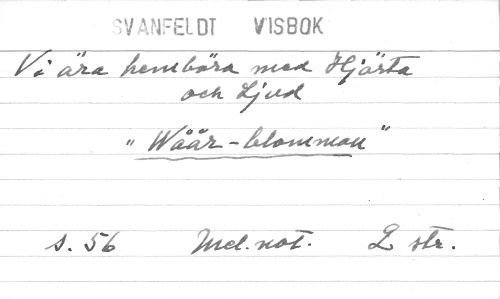 SVANFELDT VISBOK
Vi ära hembära med Hjärta
och Ljud
"Wåår-blomman"
s. 56 Mel.not. 2 str.